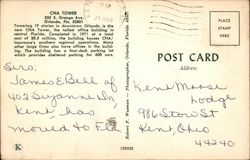 CNA TOWER
255 S. Orange Ave.
Orlando, Fla. 32801
Towering 19 stories in downtown Orlando is the
new CNA Tower, the tallest office building in
central Florida. Completed in 1971 at a total
cost of $8.5 million, the building houses CNA/
insurance's southern regional operations. Many
other large firms also have offices in the build-
ing. The building has a four-deck parking lot
which provides sheltered parking for 600 cars.
Sirs.
James E Bell of
402 Suzanne Dr,
Kent, has
moved to Fla
Robert F. Photographer, Orlando, Florida
K
PLACE
STAMP
HERE
POST CARD
Address
Kent Moose
Lodge
986 Stow St
Kent, Ohio
44240